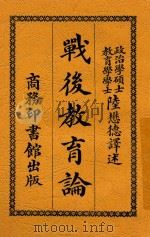 政治學碩士
教育學學士
陸懋德譯述
戰後教育論
商務印書館出版
www.mtoou.info